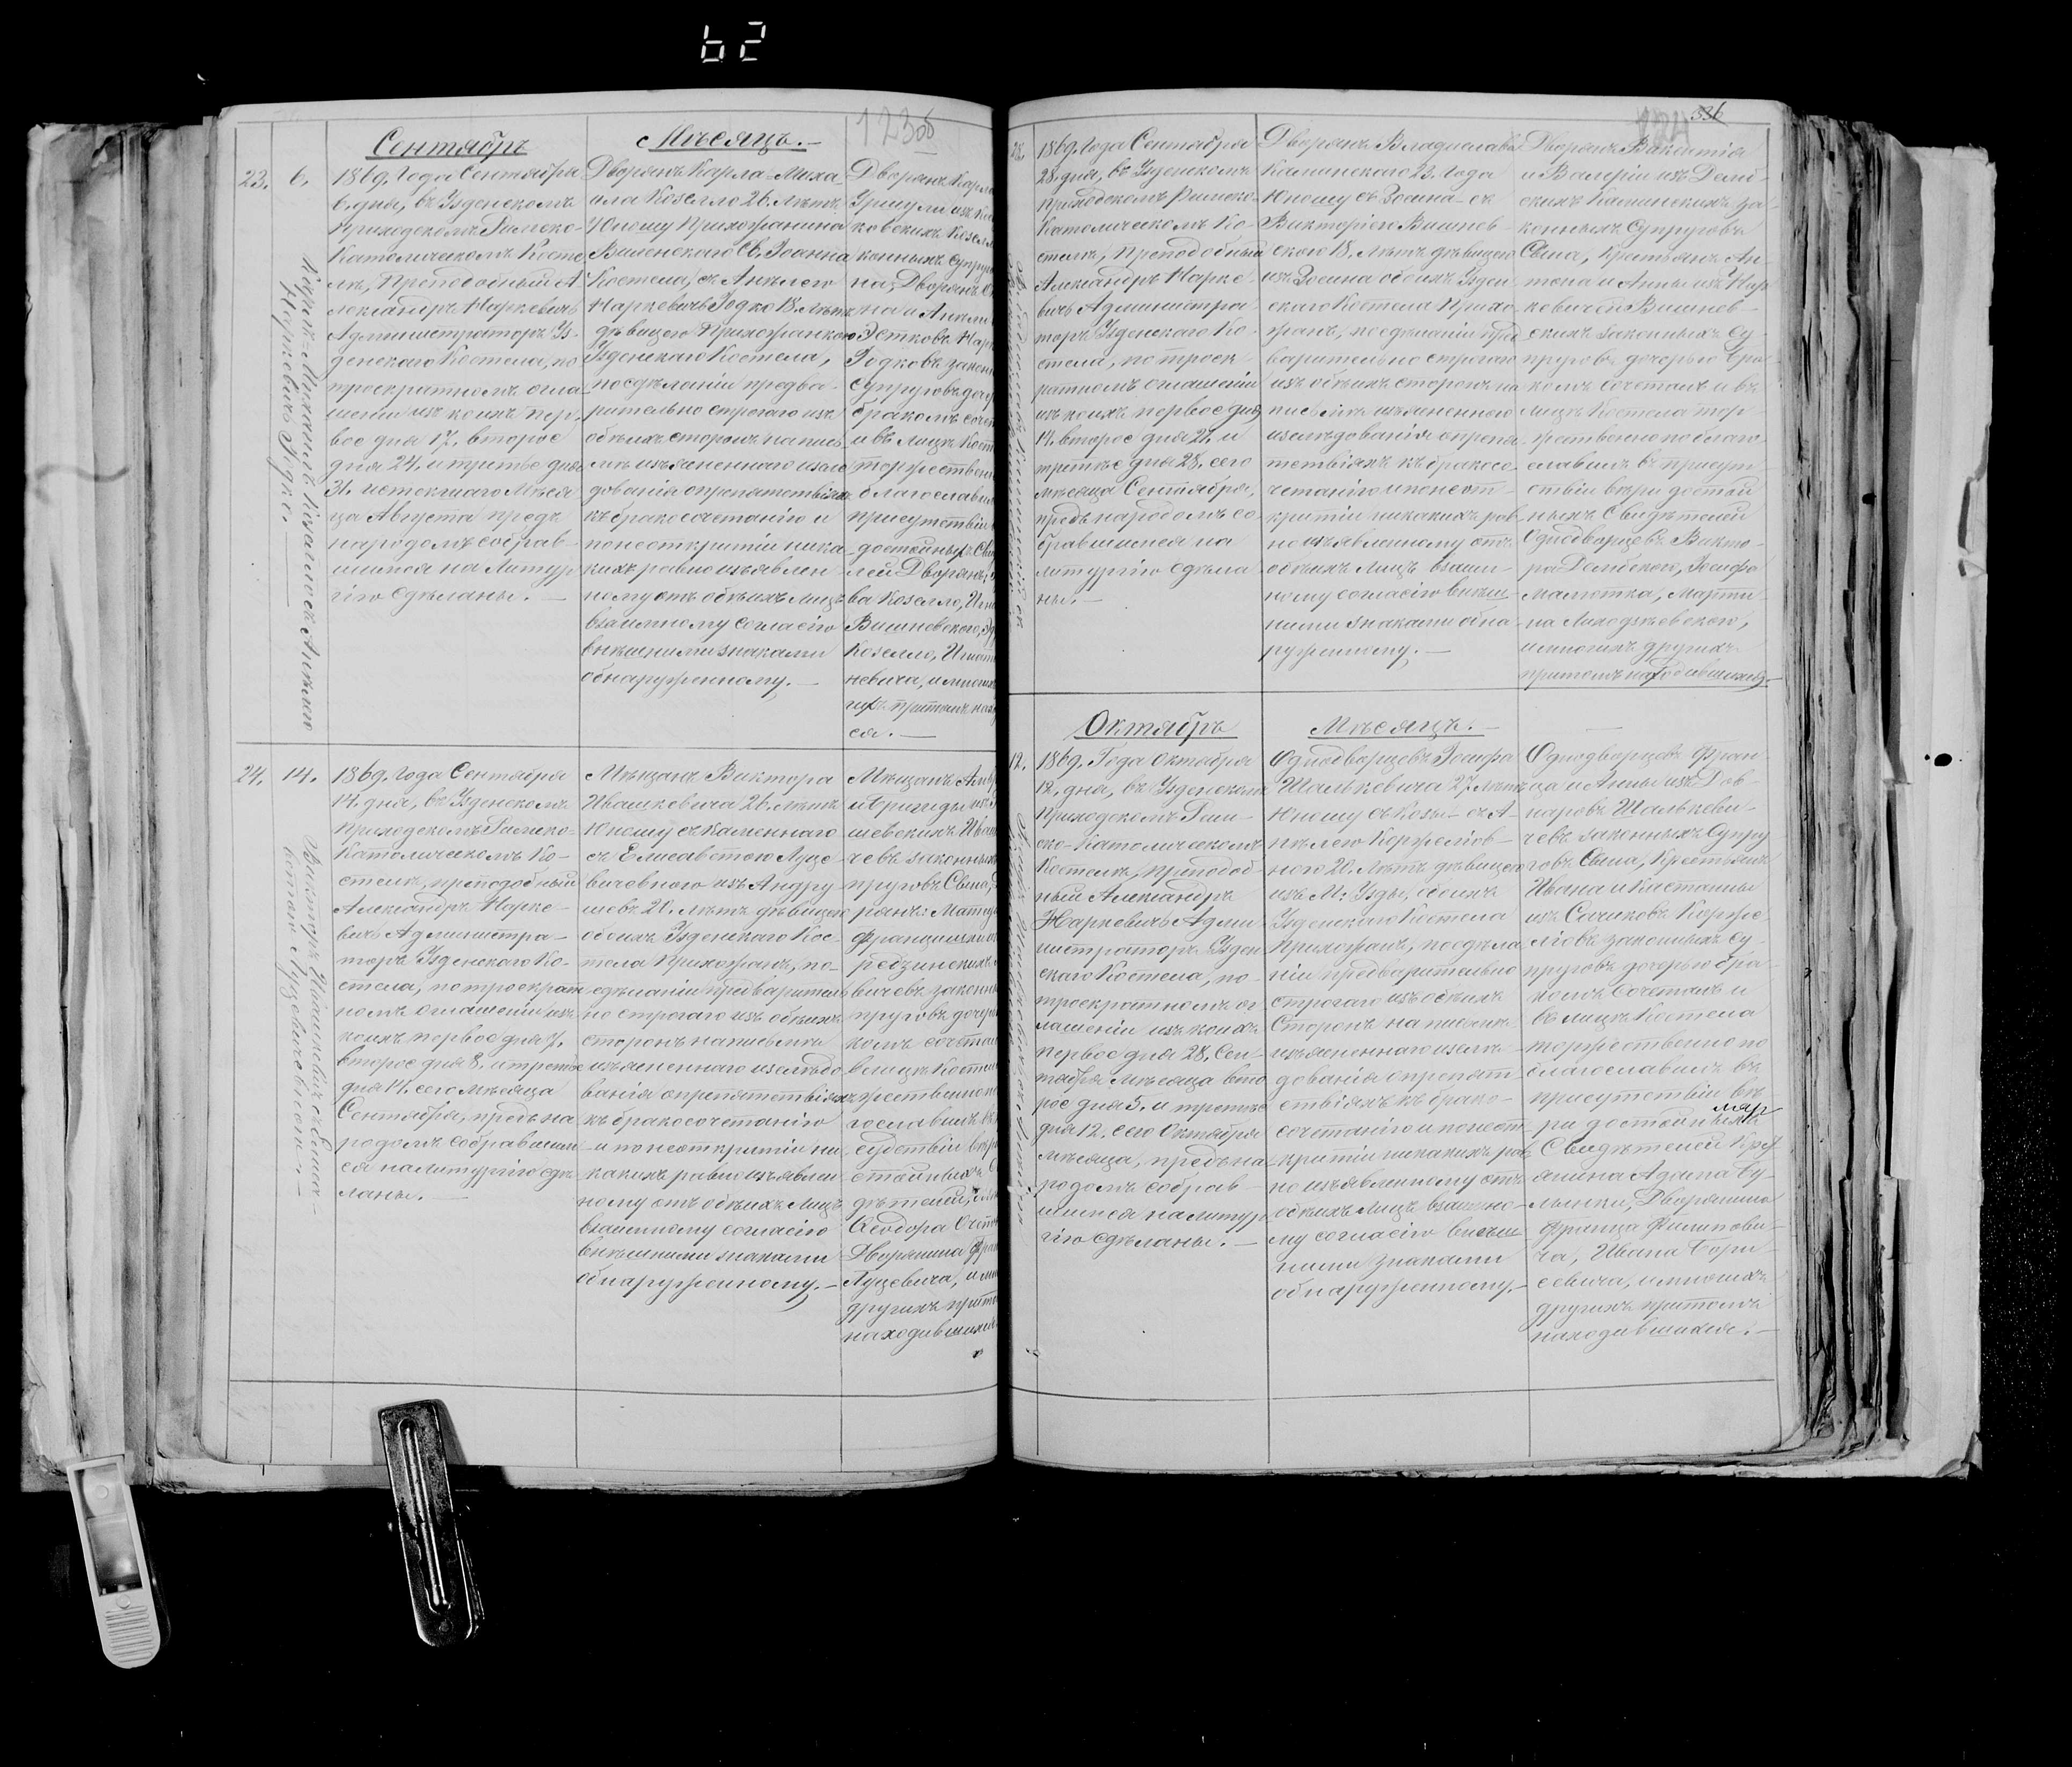 62
123об
Сентябрь
Мѣсяцъ.
23.
6.
Карлъ-Михаилъ Козелло съ Анѣлею
Наркевичъ Годко.
1869. Года Сентября
6. дня, въ Узденскомъ
Приходскомъ Римско-
Католическомъ Косте
лѣ, Преподобный А
лександръ Наркевичъ
Администраторъ Уз-
денскаго Костела, по
троекратномъ огла
шеніи изъ коихъ пер-
вое дня 17. второе
дня 24. и третье дня
31. истекшаго Мѣся
ца Августа предъ
народомъ собрав-
шимся на Литур
гію сдѣланы.
Дворянъ Карла-Миха-
ила Козелло 26. Лѣтъ
Юношу Прихожанина
Виленскаго Св. Іоанна
Костела, съ Анѣлею
Наркевичъ Годко 18. Лѣтъ
дѣвицею Прихожанкою
Узденскаго Костела,
по сдѣланіи предва-
рительно строгаго изъ
обѣихъ сторонъ на пись
мѣ изъясненнаго изслѣ
дованія о препятствіяхъ
къ бракосочетанію и
по неоткрытіи ника
кихъ равно изъявлен
ному отъ обѣихъ Лицъ
взаимному согласію
внѣшними знаками
обнаруженному.
Дворянъ Карла
Уршули изъ
ковскихъ Козелл
конныхъ Супру
на, Дворянъ
на и Анели
Эстковъ Нарк
Годковъ закон
Супруговъ доч
бракомъ соче
и въ Лицѣ Кост
торжествен
благославил
присутствіи
достойныхъ Сви
лей Дворянъ
ва Козелло, Игн
Вишневскаго,
Козелло, Игнат
невича, и многих
гихъ притомъ нах
ся.
24.
14.
Викторъ Ивашкевичъ съ Елиса-
ветою Луцевичевною.
1869. Года Сентября
14. дня, въ Узденскомъ
Приходскомъ Римско-
Католическомъ Ко-
стелѣ, преподобный
Александръ Нарке-
вичъ Администра-
торъ Узденскаго Ко-
стела, по троекрат
номъ оглашеніи изъ
коихъ первое дня 7.
второе дня 8. и третье
дня 14. сего Мѣсяца
Сентября, предъ на
родомъ собравшим
ся на литургію сдѣ
ланы.
Мѣщанъ Виктора
Ивашкевича 26. Лѣтъ
Юношу съ Каменнаго
съ Елисаветою Луце
вичевною изъ Андру
шевъ 20. Лѣтъ дѣвицею
обоихъ Узденскаго Кос-
тела Прихожанъ, по-
сдѣланіи предваритель
но строгаго изъ обѣихъ
сторонъ на письмѣ
изъясненнаго изслѣдо
ванія о препятствіяхъ
къ бракосочетанію
и по неоткрытіи ни
какихъ равно изъявлен
ному отъ обѣихъ Лицъ
взаимному согласію
внѣшними знаками
обнаруженному.
Мѣщанъ
и Бригиды изъ
шевскихъ Иваш
чевъ законных
пруговъ Сына,
рянъ: Матц
Францишки
редзинскихъ
вичевъ законн
пруговъ дочер
комъ сочетал
въ лицѣ Косте
жественно
гославилъ въ
судствіи вѣр
стойныхъ
дѣтелей,
Ѳеодора
Дворянина Фран
Луцевича, и мн
другихъ прито
находившихся.
124
336
1869. Года Сентября
28. дня, въ Узденскомъ
Приходскомъ Римско-
Католическомъ Ко-
стелѣ, Преподобный
Александръ Нарке-
вичъ Администра
торъ Узденскаго Ко-
стела, по троек-
ратномъ оглашеніи
изъ коихъ первое дня
14. второе дня 21. и
третье дня 28. сего
мѣсяца Сентября,
предъ народомъ со
бравшимся на
литургію сдѣла
ны.
Дворянъ Владислава
Каминского 23. Года
Юношу съ Зосина съ
Викторіею Вишнев-
скою 18. Лѣтъ дѣвицею
изъ Зосина обоихъ Узден
скаго Костела Прихо-
жанъ, по сдѣланіи пред
варительно строгаго
изъ обѣихъ сторонъ на
письмѣ изъясненнаго
изслѣдованія о препя
тствіяхъ къ бракосо-
четанію и по неот-
крытіи никакихъ рав
но изъявленному отъ
обѣихъ Лицъ взаим-
ному согласію внѣш
ними знаками обна
руженному.
Дворянъ Викентія
и Валеріи изъ Демб-
скихъ Каминскихъ за-
конныхъ Супруговъ
Сына, Крестьянъ Ан-
тона и Анны изъ Нар
кевичей Вишнев-
скихъ законныхъ Су-
пруговъ дочерью бра
комъ сочеталъ и въ
Лицѣ Костела тор
жественно поблаго-
славилъ въ присут
ствіи вѣри достой
ныхъ Свидѣтелей
Однодворцевъ Викто-
ра Дембского, Іосифа
Маметка, Марти-
на Лиходзѣевского,
и многихъ другихъ
притомъ находившихся.
Октябрь
Мѣсяцъ.
12.
1869. Года Октября
12. дня, въ Узденскомъ
Приходскомъ Рим-
ско-Католическомъ
Костелѣ, преподоб
ный Александръ
Наркевичъ Адми-
нистраторъ Узден
скаго Костела, по-
троекратномъ ог
лашеніи изъ коихъ
первое дня 28. Сен-
тября Мѣсяца вто
рое дня 5. и третье
дня 12. сего Октября
Мѣсяца, предъ на
родомъ собрав-
шимся на литур
гію сдѣланы.
Однодворцевъ Іосифа
Шалькевича 27. Лѣтъ
Юношу съ Козы съ А-
нѣлею Коржелов-
ною 20. Лѣтъ дѣвицею
изъ М: Узды, обоихъ
Узденскаго Костела
Прихожанъ, по сдѣла
ніи предварительно
строгаго изъ обѣихъ
Сторонъ на письмѣ
изъясненнаго изслѣ-
дованія о препят-
ствіяхъ къ брако-
сочетанію и по неот
крытіи никакихъ рав
но изъявленному отъ
обѣихъ Лицъ взаимно-
му согласію внѣш
ними знаками
обнаруженному.
Однодворцевъ Фран
ца и Анны изъ Дов-
наровъ Шалькеви-
чевъ законныхъ Супру
говъ Сына, Крестьянъ
Ивана и Кастанціи
изъ Сачиковъ Корже
лювъ законныхъ Су-
пруговъ дочерью бра-
комъ Сочеталъ и
въ лицѣ Костела
торжественно по
благославилъ въ
присутствіи вѣ
ри достойныхъ
Свидѣтелей Кре
янина Адама Бу-
льнки, Дворянина
Франца Филипови-
ча, Ивана Бори
севича, и многихъ
другихъ притомъ
находившихся.